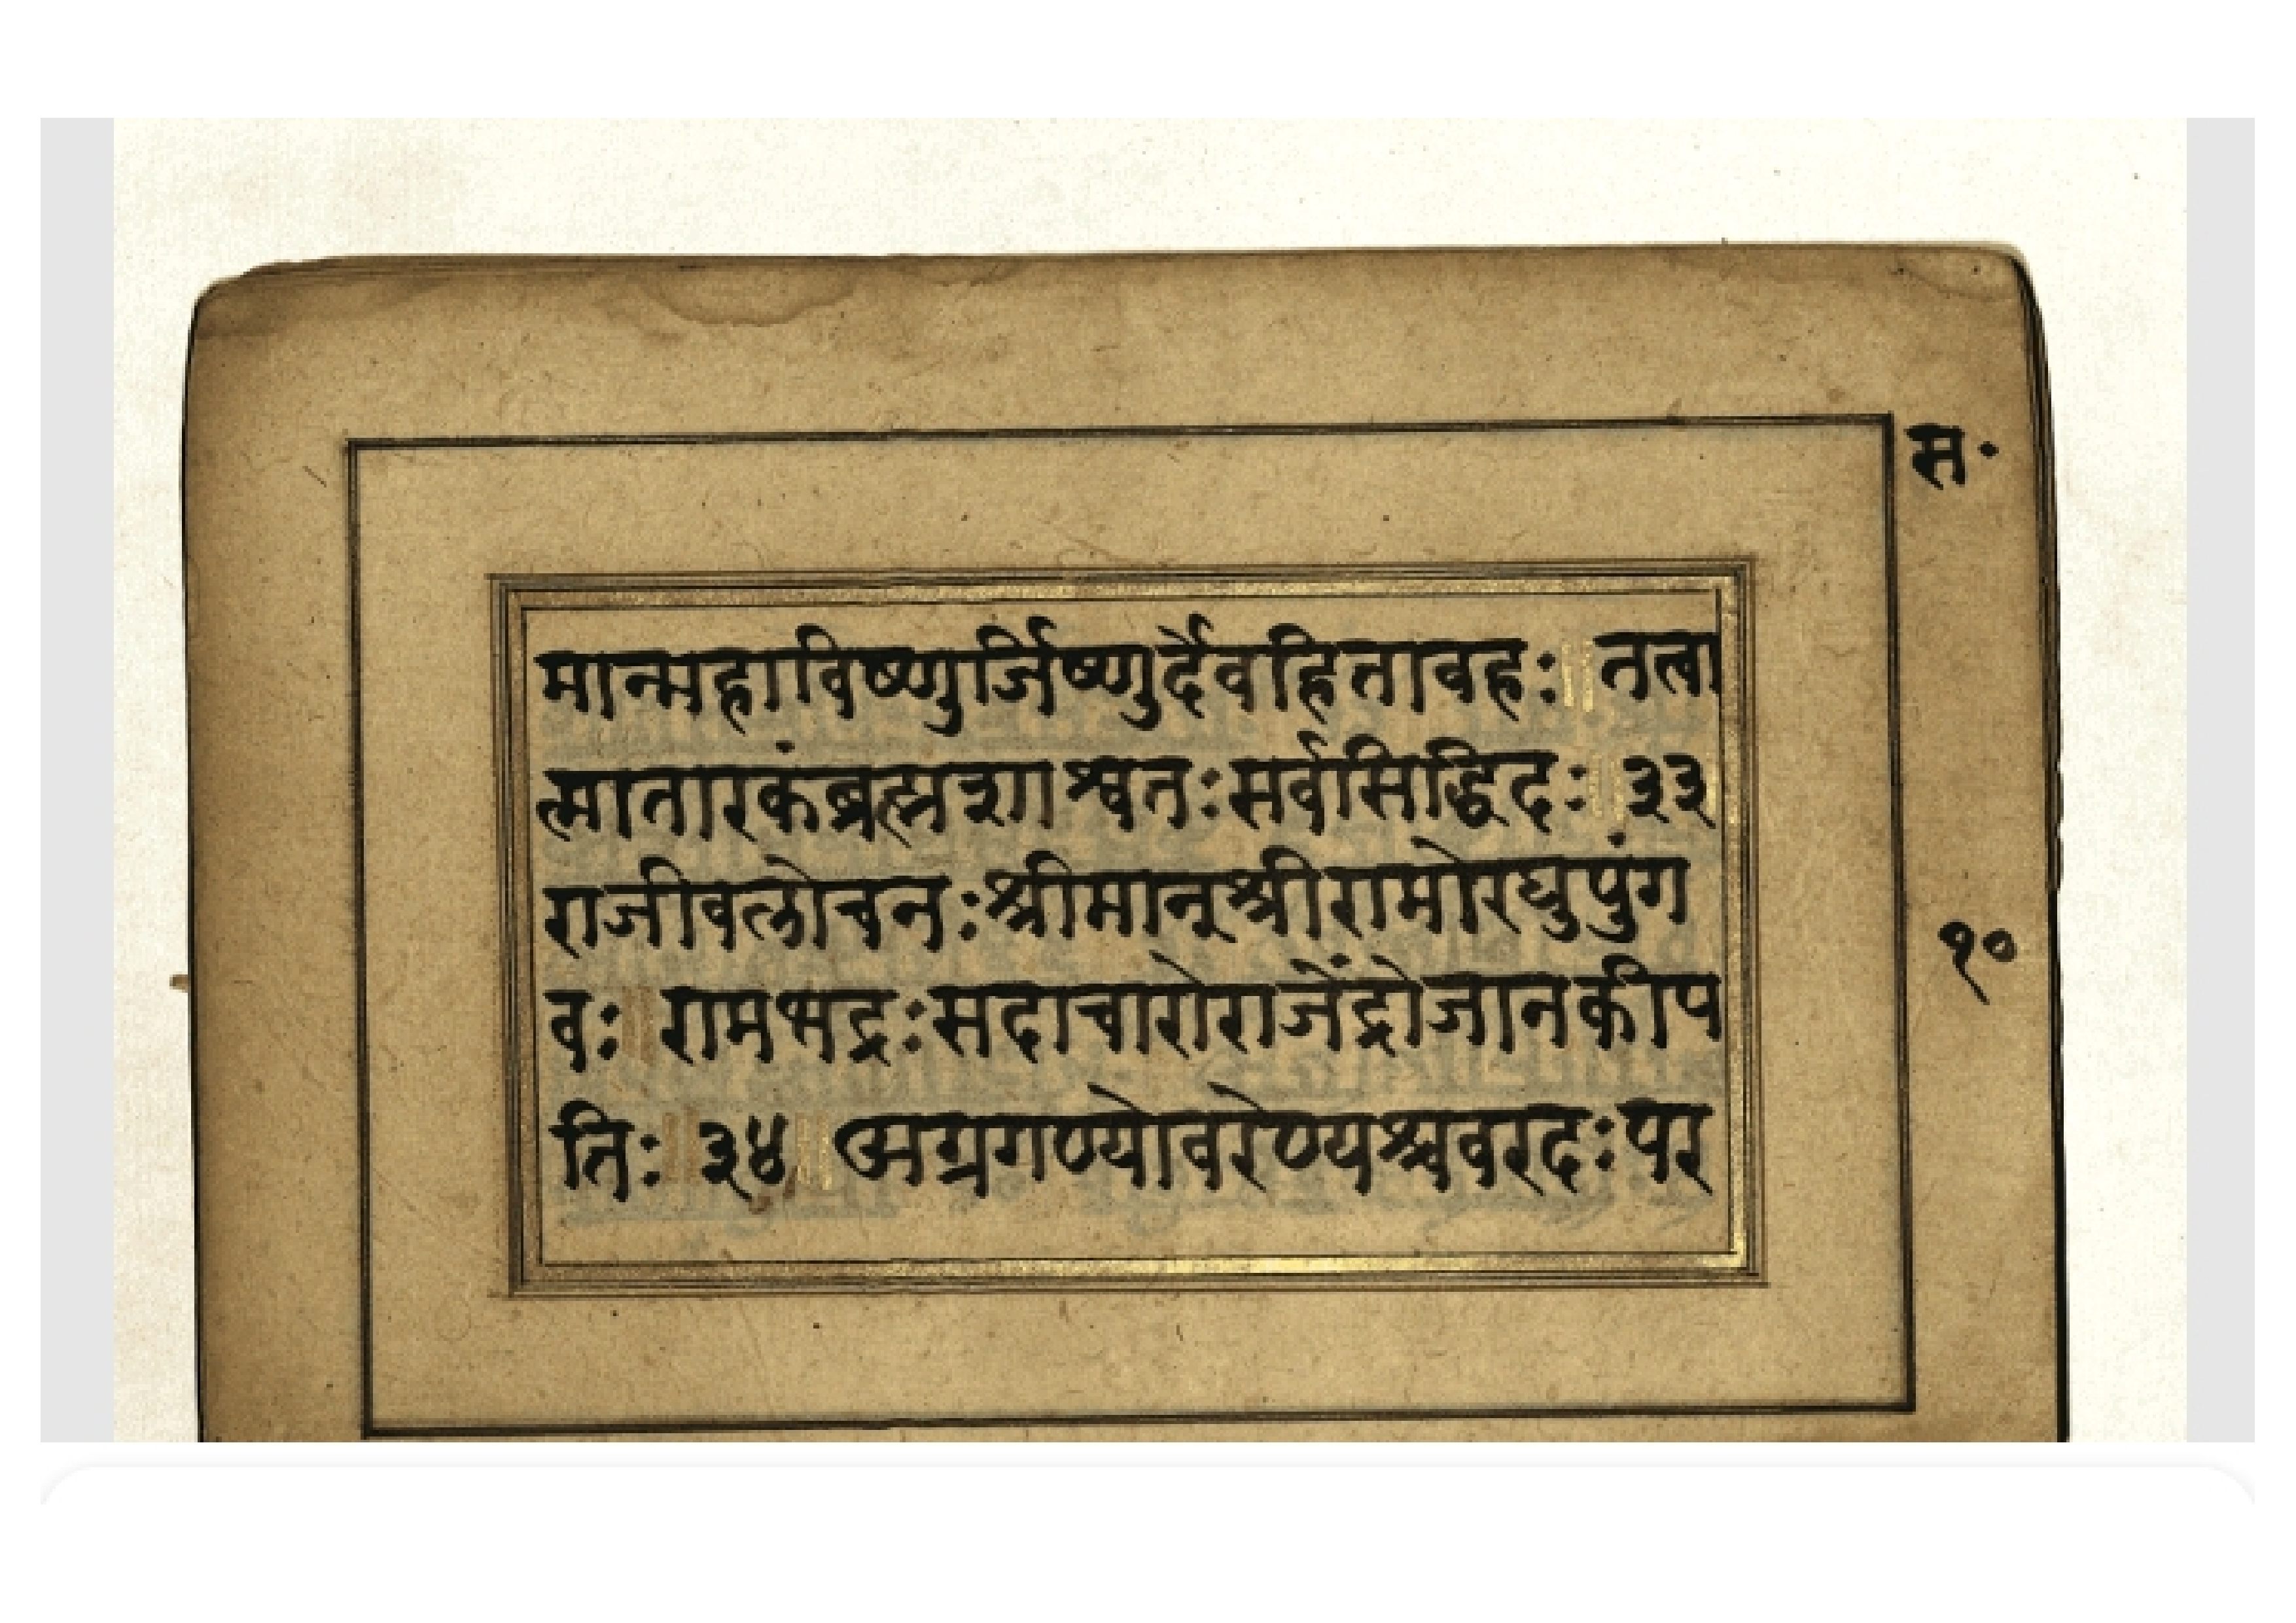 स॰
मान्महाविष्णुर्जिष्णुर्दैवहितावहः॥तत्वा
त्मातारकंब्रह्मशाश्वतःसर्वसिद्धिदः॥३३
राजीवलोचनःश्रीमान्श्रीरामोरघुपुंग
वः॥रामभद्रःसदाचारोराजेंद्रोजानकीप
तिः॥३४॥अग्रगण्योवरेण्यश्चवरदःपर
१०